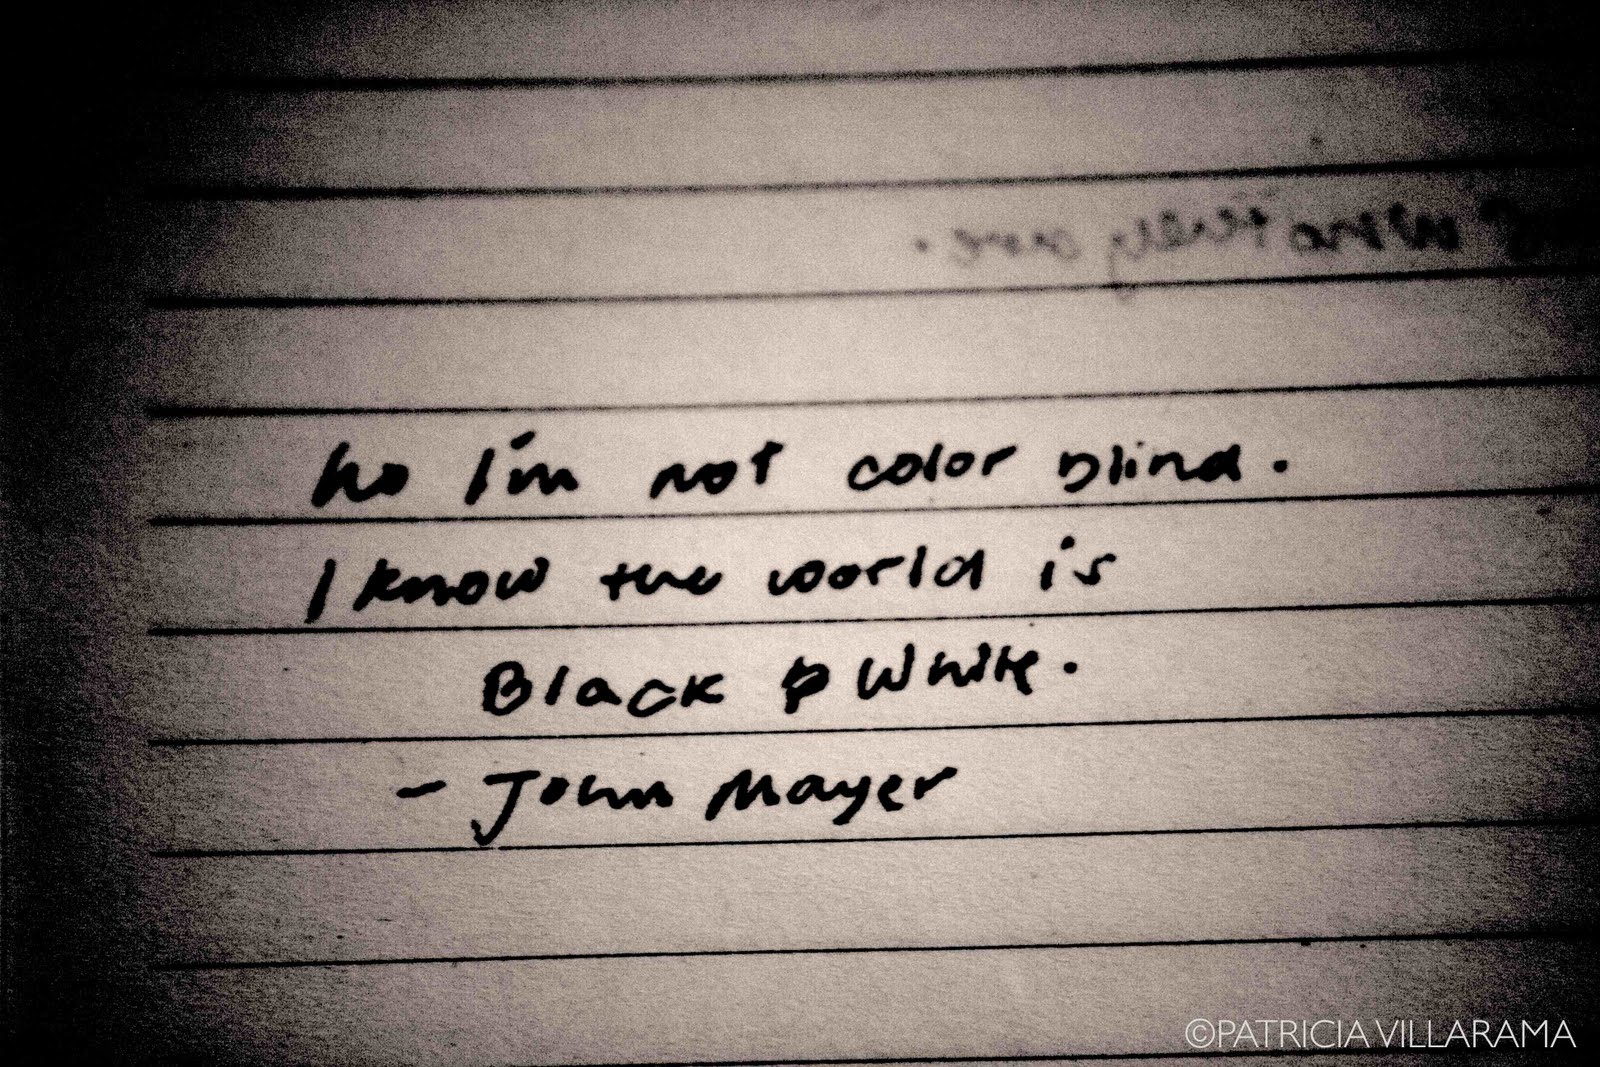 No I'm not color blind.
I know the world is
Black & White.
- John Mayer
©PATRICIA VILLARAMA